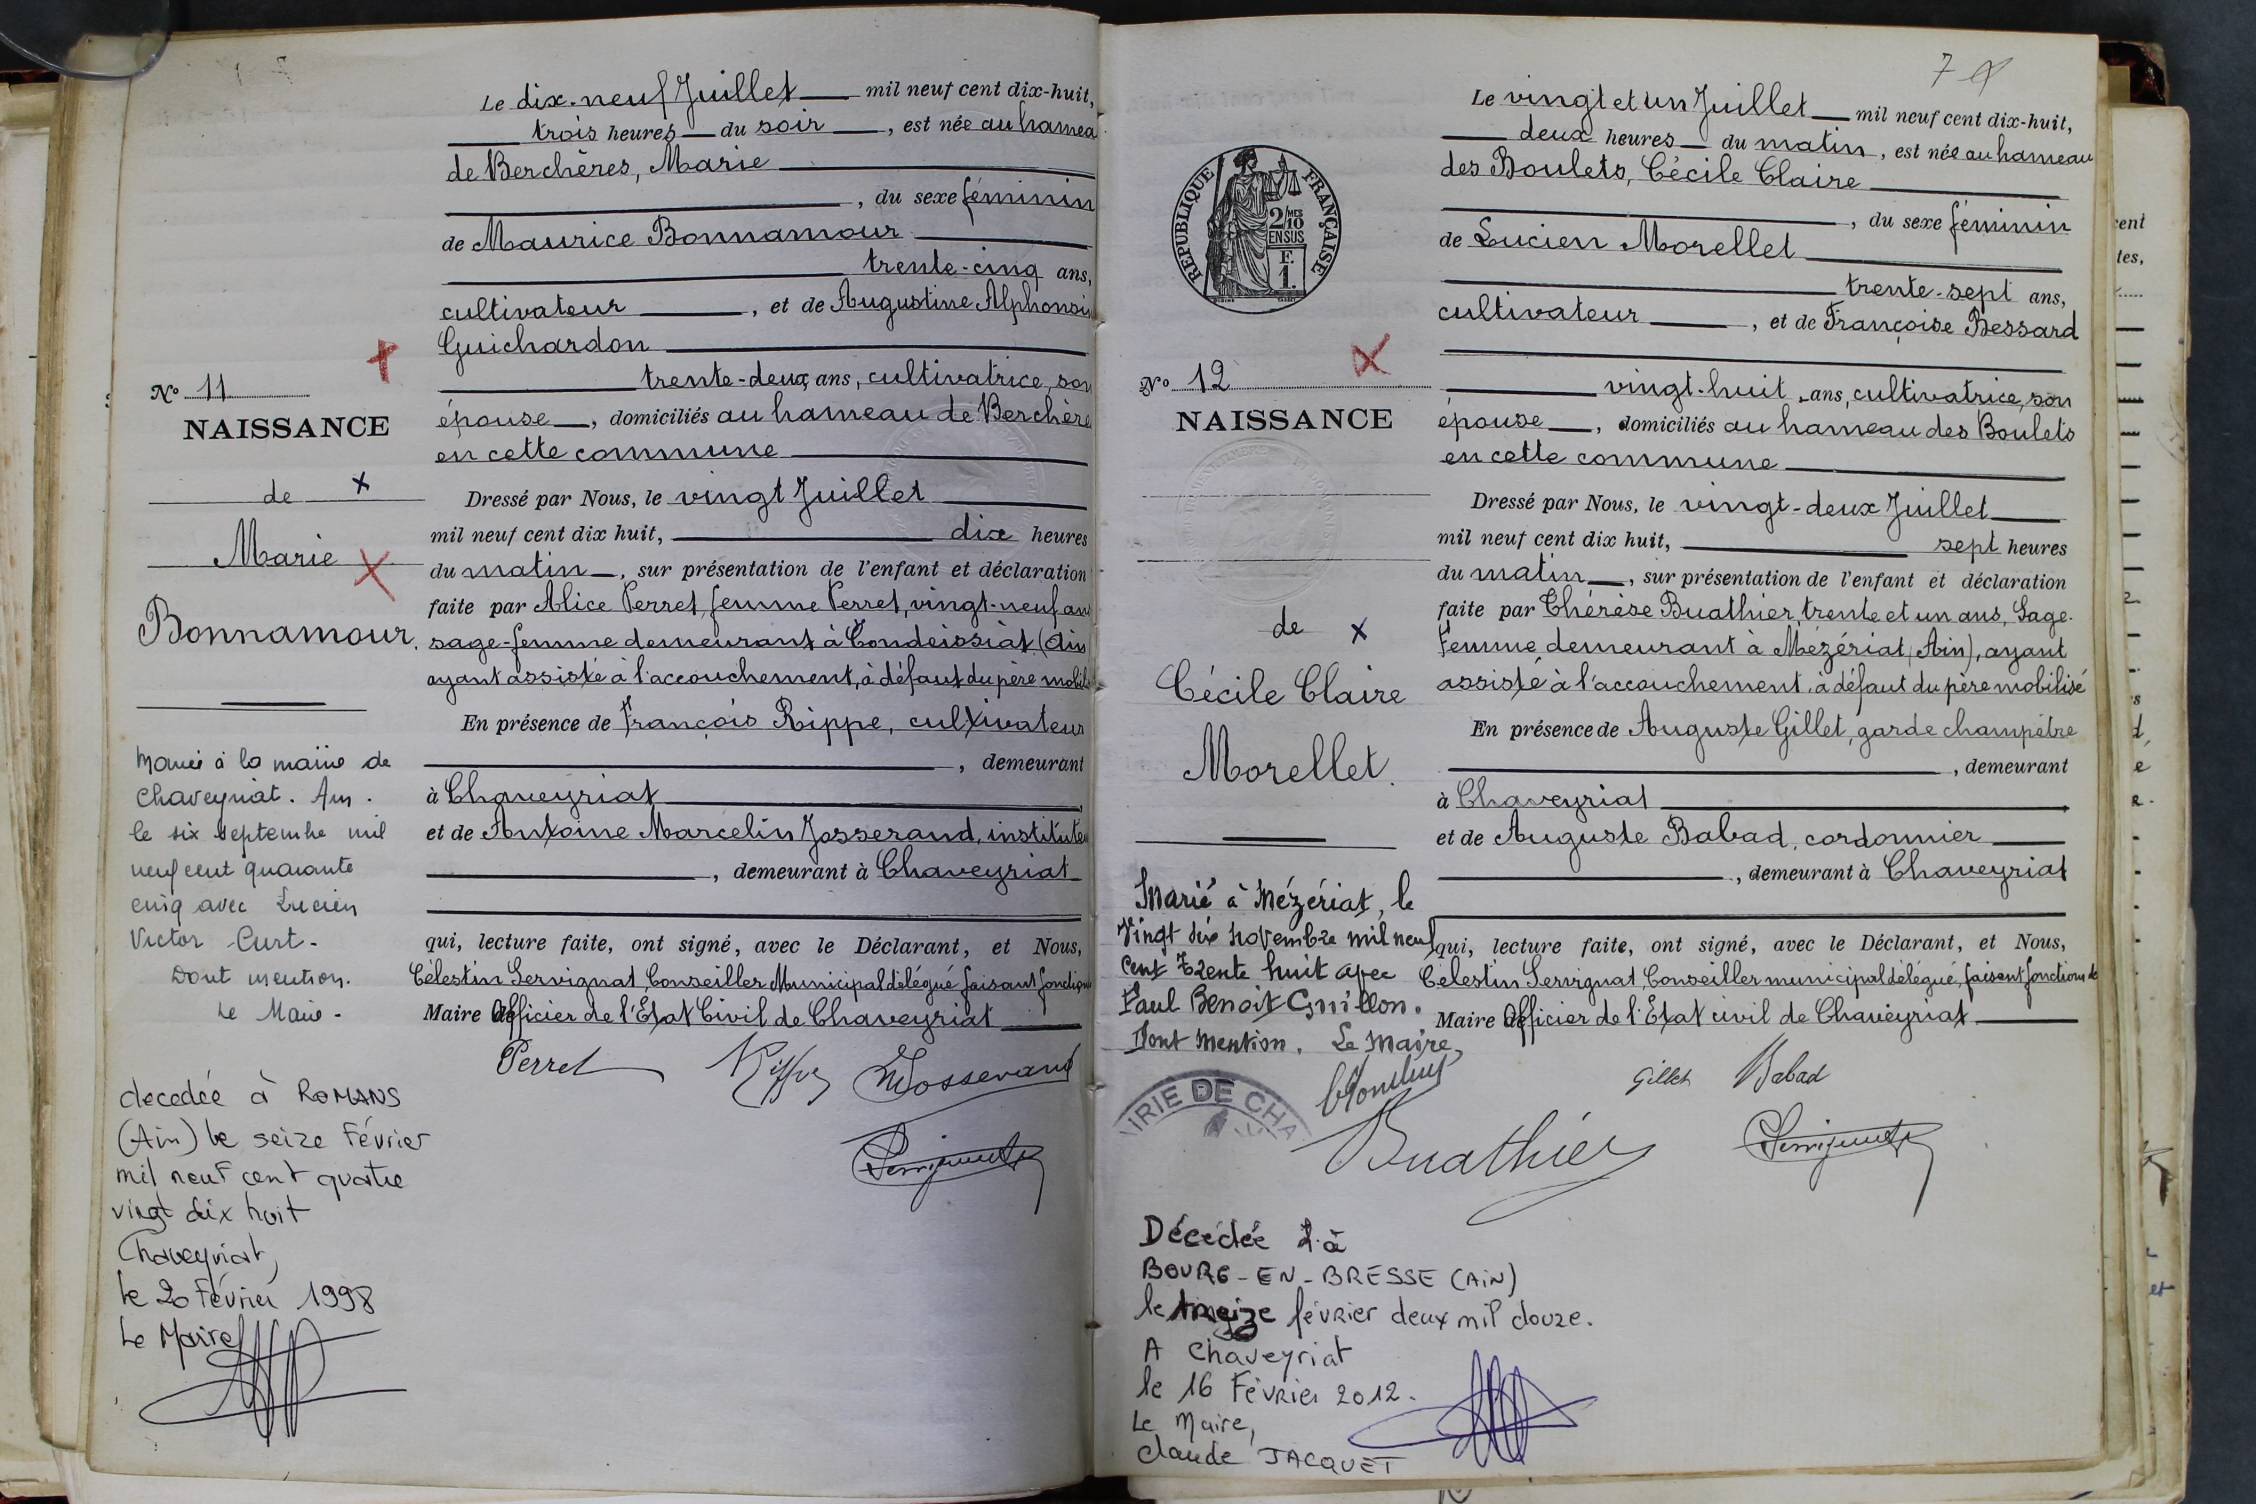 Le dix-neuf Juillet mil neuf cent dix-huit,
trois heures du soir, est née au hamea
de Berchères, Marie
, du sexe féminin
de Maurice Bonnamour
trente-cinq ans,
cultivateur, et de Augustine Alphonsi
Guichardon
trente-deux ans, cultivatrice, son
épouse, domiciliés au hameau de Berchère
en cette commune
Dressé par Nous, le vingt Juillet
mil neuf cent dix huit, dix heures
du matin, sur présentation de l'enfant et déclaration
faite par Alice Perret, femme Perret, vingt-neuf ans
sage-femme demeurant à Condeissiat (Ain
ayant assisté à l'accouchement, à défaut du père mobili
En présence de François Rippe, cultivateur
, demeurant
à Chaveyriat
et de Antoine Marcelin Josserand, institute
, demeurant à Chaveyriat
qui, lecture faite, ont signé, avec le Déclarant, et Nous,
Célestin Servignat, Conseiller Municipal délégué faisant fonction
Maire Officier de l'Etat Civil de Chaveyriat
Perret Rippe Josserand
Servignat
N° 11
NAISSANCE
de x
Marie
Bonnamour.
Mariée à la mairie de
Chaveyriat. Ain.
le six septembre mil
neuf cent quarante
cinq avec Lucien
Victor Curt-
Dont mention.
Le Maire-
decedée à ROMANS
(Ain) le seize Février
mil neuf cent quatre
vingt dix huit
Chaveyriat,
le 20 Février 1998
Le Maire
7
Le vingt et un Juillet mil neuf cent dix-huit,
deux heures du matin, est née au hameau
des Boulets, Cécile Claire
, du sexe féminin
de Lucien Morellet
trente-sept ans,
cultivateur, et de Françoise Bessard
vingt-huit ans, cultivatrice, son
épouse, domiciliés au hameau des Boulets
en cette commune
Dressé par Nous, le vingt-deux Juillet
mil neuf cent dix huit, sept heures
du matin, sur présentation de l'enfant et déclaration
faite par Thérèse Buathier, trente et un ans, Sage-
Femme demeurant à Mézériat (Ain), ayant
assisté à l'accouchement, à défaut du père mobilisé
En présence de Auguste Gillet, garde champêtre
, demeurant
à Chaveyriat
et de Auguste Babad, cordonnier
, demeurant à Chaveyriat
qui, lecture faite, ont signé, avec le Déclarant, et Nous,
Célestin Servignat, Conseiller municipal délégué, faisant fonctions de
Maire Officier de l'Etat civil de Chaveyriat
Gillet Babad
Buathier Servignat
RÉPUBLIQUE FRANÇAISE
2/MES
10
EN SUS
F.
1.
N° 12
NAISSANCE
de x
Cécile Claire
Morellet.
Marié à Mézériat, le
Vingt six novembre mil neuf
cent trente huit avec
Paul Benoit Guillon.
Dont mention. Le Maire,
MAIRIE DE CHA
Décédée à
BOURG-EN-BRESSE (AIN)
le treize février deux mil douze.
A Chaveyriat
le 16 Février 2012.
Le Maire,
Claude JACQUET